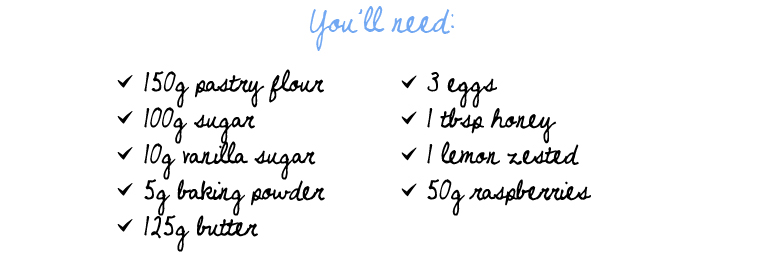 You'll need:
150g pastry flour
100g sugar
10g vanilla sugar
5g baking powder
125g butter
3 eggs
1 tbsp honey
1 lemon zested
50g raspberries